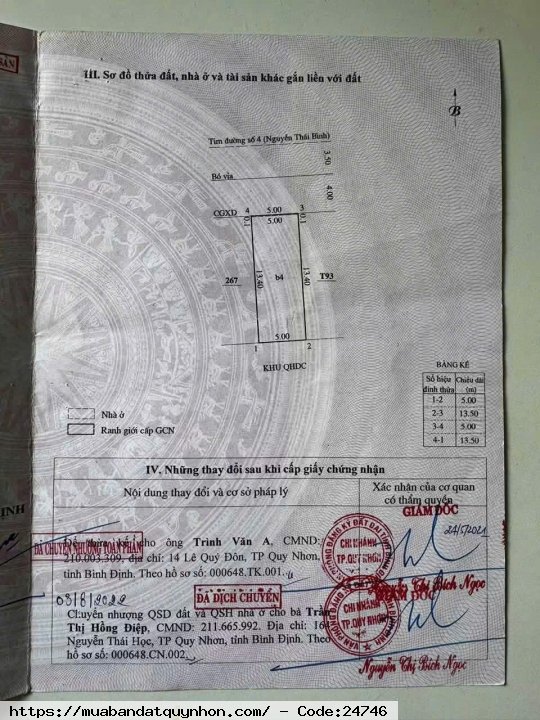 III. Sơ đồ thửa đất, nhà ở và tài sản khác gắn liền với đất
B
Tim đường số 4 (Nguyễn Thái Bình)
3.50
Bó vỉa
4.00
CGXD 4 5.00 3
0.1 5.00 0.1
267 13.40 b4 13.40 T93
5.00
1 2
KHU QHDC
BẢNG KÊ
Số hiệu đỉnh thửa Chiều dài (m)
1-2 5.00
2-3 13.50
3-4 5.00
4-1 13.50
Nhà ở
Ranh giới cấp GCN
IV. Những thay đổi sau khi cấp giấy chứng nhận
Nội dung thay đổi và cơ sở pháp lý
Xác nhận của cơ quan
có thẩm quyền
GIÁM ĐỐC
24/5/2021
Để thừa kế cho ông Trịnh Văn A, CMND:
ĐÃ CHUYỂN NHƯỢNG TOÀN PHẦN
210.003.309, địa chỉ: 14 Lê Quý Đôn, TP Quy Nhơn,
tỉnh Bình Định. Theo hồ sơ số: 000648.TK.001.
CHI NHÁNH
TP.QUY NHƠN
Nguyễn Thị Bích Ngọc
ĐÃ DỊCH CHUYỂN
GIÁM ĐỐC
03/8/2022
Chuyển nhượng QSD đất và QSH nhà ở cho bà Trần
Thị Hồng Điệp, CMND: 211.665.992. Địa chỉ: 16
Nguyễn Thái Học, TP Quy Nhơn, tỉnh Bình Định. Theo
hồ sơ số: 000648.CN.002
CHI NHÁNH
TP.QUY NHƠN
Nguyễn Thị Bích Ngọc
https://muabandatquynhon.com/ - Code:24746